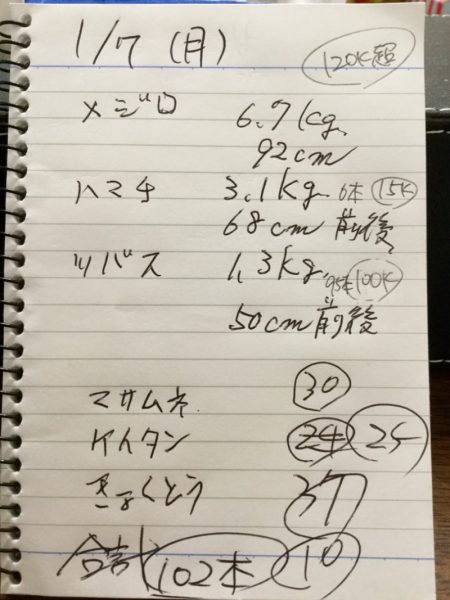 1/7 (月) 120K超
メジロ 6.7kg.
92cm
ハマチ 3.1kg. 6本 15K
68cm 前後
ツバス 1.3kg. 95本 100K
50cm前後
マサムネ 30
ケイタン 24 25
きょくとう 37
合計 102本 10